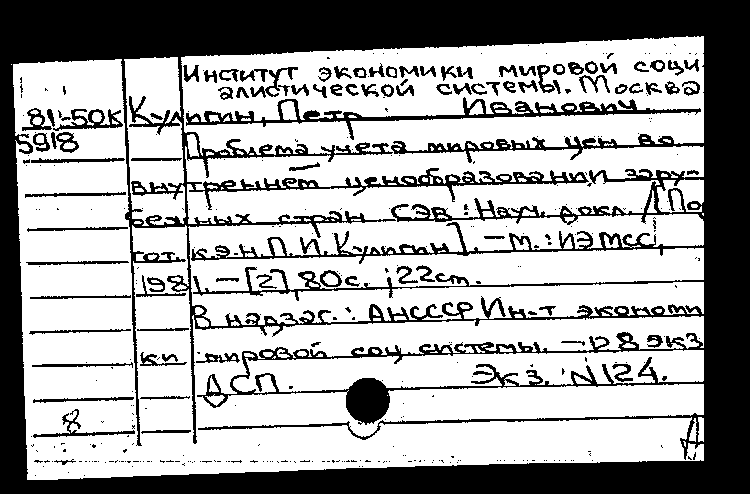 Институт экономики мировой соци-
алистической системы. Москва
81-50К Кулигин, Петр Иванович.
5918
Проблема учета мировых цен во
внутреннем ценообразовании зару-
бежных стран СЭВ : Науч. докл. / [Под
гот. к.э.н. П. И. Кулигин]. – М. : ИЭМСС,
1981. – [2], 80 с. ; 22 см.
В надзаг.: АН СССР, Ин-т экономи
ки мировой соц системы. – 128 экз
ДСП. Экз. N 124.
8
А